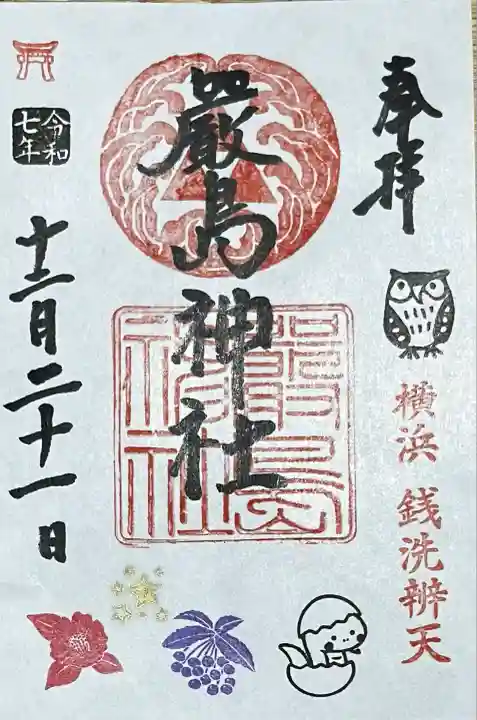 奉拝
横浜 銭洗辨天
嚴島神社
嚴島
神社
令和
七年
十二月二十一日